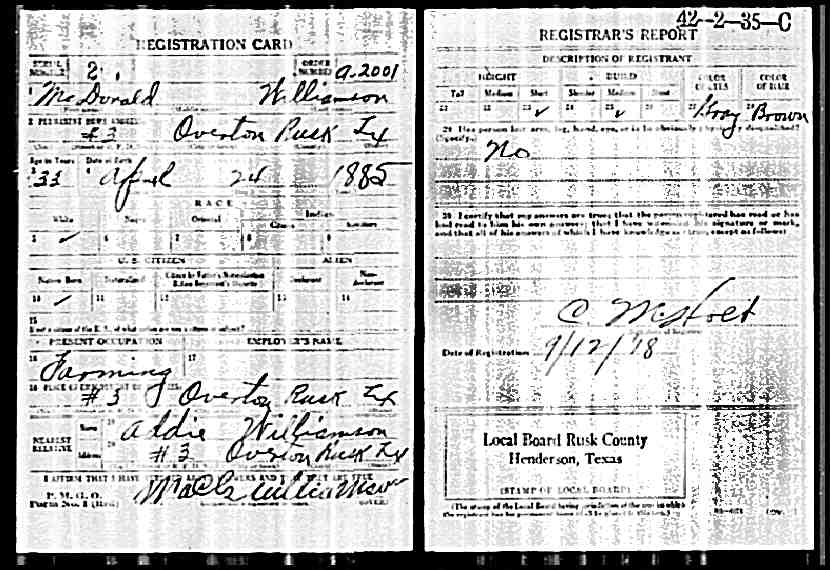 REGISTRATION CARD
SERIAL NUMBER 2
ORDER NUMBER A-2001
McDonald Williamson
2 PERMANENT HOME ADDRESS
#3 Overton Rusk Tx
Age in Years Date of Birth
33 April 24 1885
RACE
White Negro Oriental Indian
Citizen
5 ✓ 6 7 8 9
U. S. CITIZEN ALIEN
Native Born Naturalized Citizen by Father's Naturalization Before Registrant's Majority Declarant Non-declarant
10 ✓ 11 12 13 14
15
If not a citizen of the U. S., of what nation are you a citizen or subject?
PRESENT OCCUPATION EMPLOYER'S NAME
16 Farming 17
18 PLACE OF EMPLOYMENT
#3 Overton Rusk Tx
NEAREST RELATIVE
Name 19 Addie Williamson
Address 20 #3 Overton Rusk Tx
I AFFIRM THAT I HAVE
P. M. G. O.
Form No. 1 (Red)
(OVER)
42-2-35-C
REGISTRAR'S REPORT
DESCRIPTION OF REGISTRANT
HEIGHT BUILD COLOR OF EYES COLOR OF HAIR
Tall Medium Short Slender Medium Stout
21 22 23 ✓ 24 25 ✓ 26 27 Gray 28 Brown
29 Has person lost arm, leg, hand, eye, or is he obviously physically disqualified?
(Specify.)
No
30 I certify that my answers are true; that the person registered has read or has
had read to him his own answers; that I have witnessed his signature or mark,
and that all of his answers of which I have knowledge are true, except as follows:
C. McHolt
Date of Registration 9/12/18
Local Board Rusk County
Henderson, Texas
(STAMP OF LOCAL BOARD)
(The stamp of the Local Board having jurisdiction of the area in which
the registrant has his permanent home shall be placed in this box.)